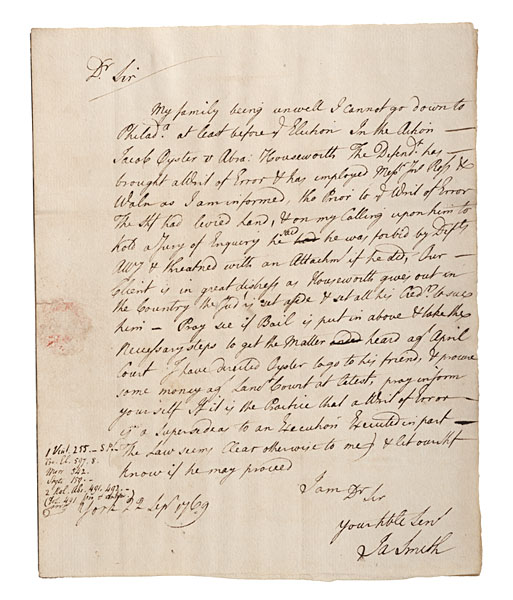 Dr Sir
My family being unwell I cannot go down to
Philada. at least before ye Election In the Action —
Jacob Oyster v Abra: Houseworth The Defendt. has —
brought a Writ of Error & has employed Messrs Jno Ross &
Waln as I am informed, tho Prior to ye Writ of Error
The Shf had levied hand, & on my Calling upon him to
hold a Jury of Enquiry he said he was forbid by Defts
Atty & threatned with an Attachmt if he did, Our —
Client is in great distress as Houseworth gives out in
the Country the Jud is set aside & set all his Credrs to sue
him — Pray see if Bail is put in above & take the
Necessary steps to get the Matter heard agt April
Court I have directed Oyster to go to his friend, & procure
some money agt Lancr Court at latest, pray inform
yourself If it is the Practice that a Writ of Error —
is a Supersedeas to an Execution Executed in part —
(The Law seems Clear otherwise to me) & let our Shf
know if he may proceed
1 Vent. 255. — S.P.
Cro. El. 597. 8.
342.
150. —
2 Rol. Abr. 491, 492.
491
York 22 Sepr 1769
I am Dr Sir
Your Hble Servt
Ja Smith